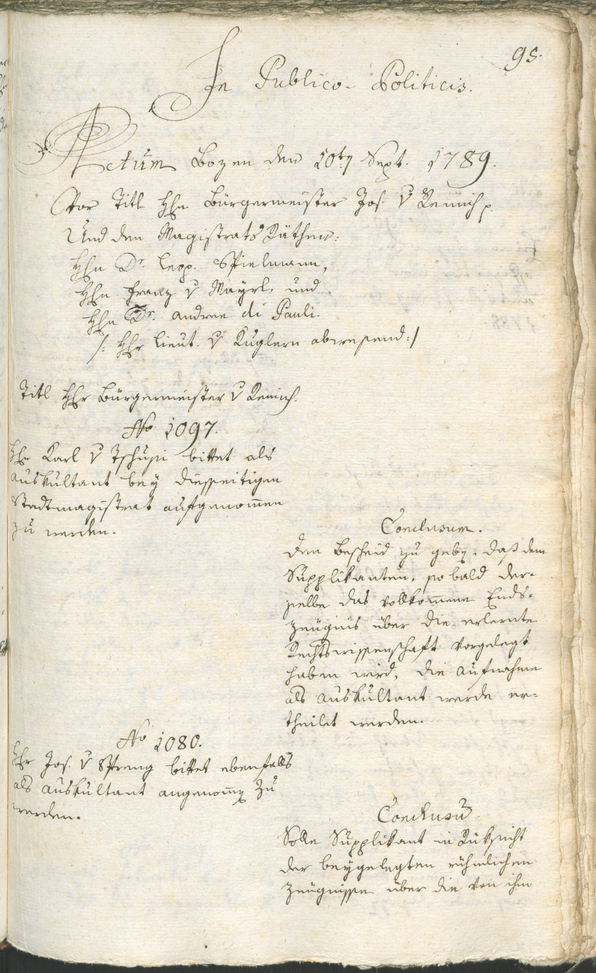 95.
In Publico-Politicis.
Actum Bozen den 10ty Sept. 1789.
Cor Titl Hhn Bürgermeister Jos. v Remich p.
Und den Magistrats Räthen:
Hhn Dr. Leop. Spielmann,
Hhn Franz v Mayrl, und
Hhn Dr. Andree di Pauli.
/: Hhr Lieut. v Kuglern abwesend :/
Titl Hhr Bürgermeister v Remich.
No 1097.
Hhr Karl v Tschusi bittet als
Auskultant bey diesseitigen
Stadtmagistrat aufgenommen
zu werden.
Conclusum.
Dem Bescheid zu geby. daß dem
Supplikanten, so bald der-
selbe das vollkommene Ends-
zeugniß über die erlernte
Rechtswissenschaft vorgelegt
haben wird, die Aufnahme
als Auskultant werde er-
theilet werden.
No 1080.
Hhr Jos. v Spreng bittet ebenfalls
als Auskultant angenomy zu
werden.
Conclusū
Solle Supplikant in Rüksicht
der beygelegten rühmlichen
Zeugnisse über die von ihm